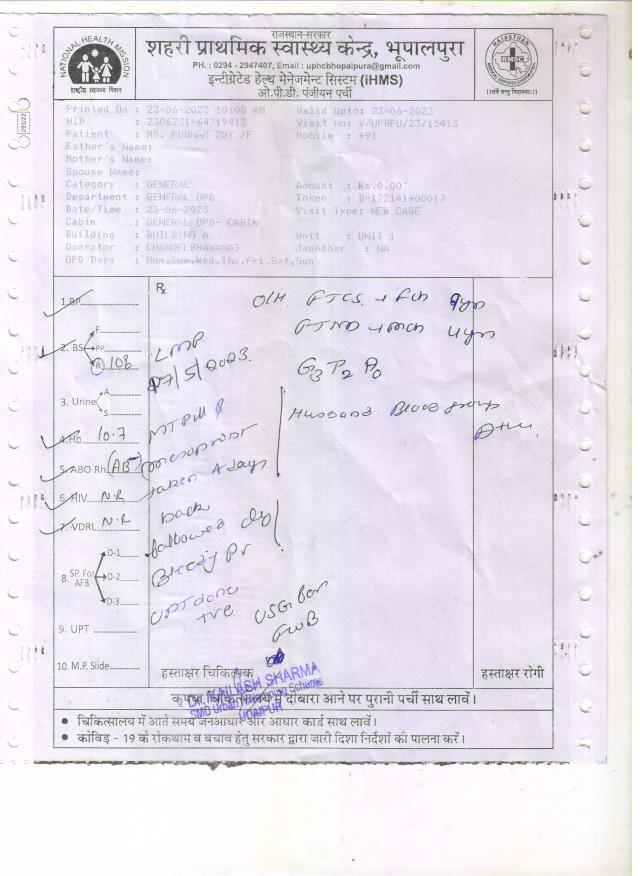 राजस्थान-सरकार
शहरी प्राथमिक स्वास्थ्य केन्द्र, भूपालपुरा
PH. : 0294 - 2947407, Email : uphcbhopalpura@gmail.com
इन्टीग्रेटेड हेल्थ मेनेजमेन्ट सिस्टम (iHMS)
ओ.पी.डी. पंजीयन पर्ची
NATIONAL HEALTH MISSION
राष्ट्रीय स्वास्थ्य मिशन
RAJASTHAN
RMSC
Printed On : 23-06-2023 10:08 AM Valid Upto: 23-06-2023
HID : 2306231-64719413 Visit No: V/UPBPU/23/15413
Patient : MS. 28Y /F Mobile : +91
Father's Name:
Mother's Name:
Spouse Name:
Category : GENERAL Amount : Rs.0.00
Department : GENERAL OPD Token : D-172141-00017
Date/Time : 23-06-2023 Visit Type: NEW CASE
Cabin : GENERAL OPD- CABIN
Building : BUILDING A Unit : UNIT 1
Operator : CHANDELBHAWANA3 JanAdhar : NA
OPD Days : Mon,Tue,Wed,Thu,Fri,Sat,Sun
Rx
O/H. FTCS → Fch 9yr
FTND → mch 4yr
G3 P2 A0
1.BP
2. BS F.
PP
R 108
3. Urine A
S
4.Hb 10.7
5. ABO Rh (AB-)
6. HIV N.R
7. VDRL N.R
8. SP. For AFB D-1
D-2
D-3
9. UPT
10. M.P. Slide
LMP
17/5/2023.
MT Pill
misoprost
taken 4 days
back
followed by
Bleeding PV
UPT done
+ve
USG for
FWB
Husband Blood group
हस्ताक्षर चिकित्सक
हस्ताक्षर रोगी
Dr. KAILASH SHARMA
UDAIPUR
कृपया चिकित्सालय में दोबारा आने पर पुरानी पर्ची साथ लावें।
● चिकित्सालय में आते समय जनआधार और आधार कार्ड साथ लावें।
● कोविड - 19 के रोकथाम व बचाव हेतु सरकार द्वारा जारी दिशा निर्देशों की पालना करें।